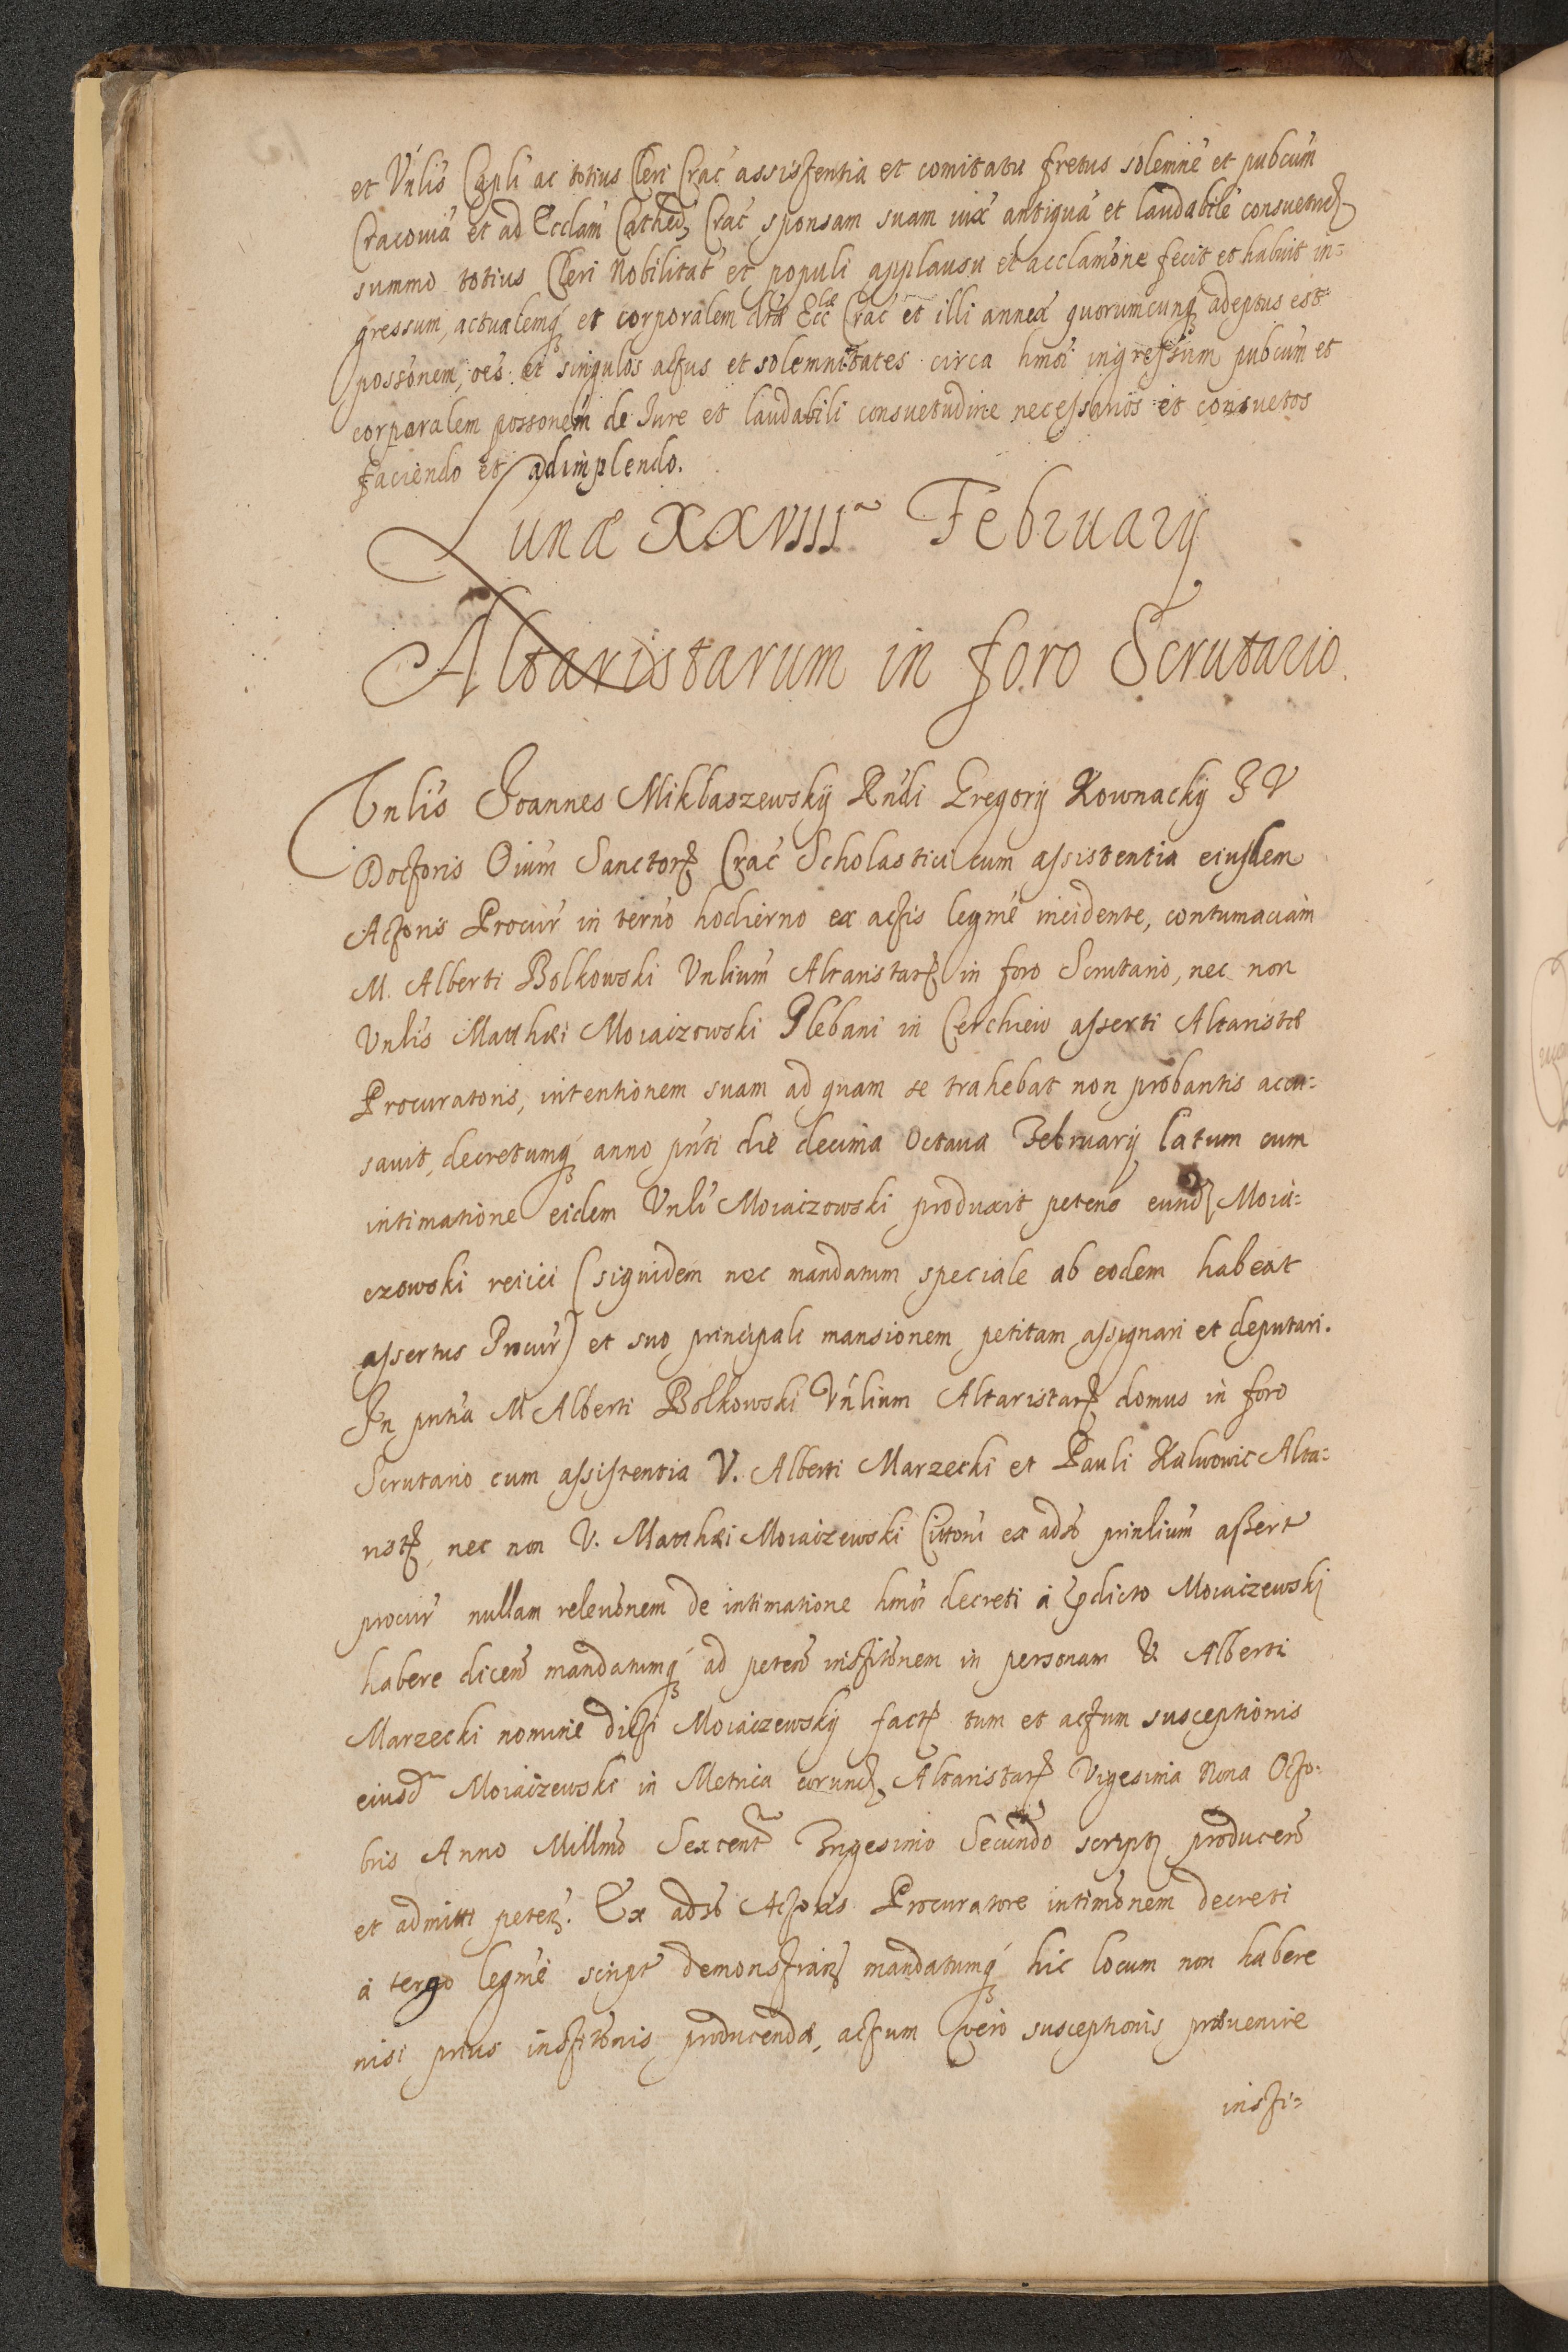 et Vnlis Capli ac totius Cleri Crac assistentia et comitatu fretus solemne et pubcum
Cracouiã et ad Ecclam Cathed Crac sponsam suam iux antiquã et laudabile consuetud
summo totius Cleri Nobilitat et populi applausu et acclamõne fecit et habuit in=
gressum, actualemq et corporalem dtã Ecclæ Crac et illi annex quorumcunq adeptus est
possõnem, oes et singulos actus et solemnitates circa hmoi ingressum pubcum et
corporalem possonem de Iure et laudabili consuetudine necessarios et consuetos
faciendo et adimplendo.
Lunæ XXVIIIa Februarij
Altaristarum in foro Scrutario.
Vnlis Joannes Miklaszewskÿ Rndi Gregorij Kownackÿ J V
Doctoris Oium Sanctor Crac Scholastici cum assistentia eiusdem
Actoris Procur in terno hodierno ex actis legmè incidente, contumaciam
M. Alberti Bolkowski Vnlium Altaristar in foro Scrutario, nec non
Vnlis Matthæi Moiaizowski Plebani in Cerchiew asserti Altaristæ
Procuratoris, intentionem suam ad quam se trahebat non probantis accu=
sauit, decretumq anno pnti die decima Octaua Februarij latum cum
intimatione eidem Vnli Moiaizowski produxit petens eund Moia=
czowski reiici (siquidem nec mandatum speciale ab eodem habeat
assertus Procur) et suo principali mansionem petitam assignari et deputari.
In pntia M Alberti Bolkowski Vnlium Altaristar domus in foro
Scrutario cum assistentia V. Alberti Marzecki et Pauli Kalwowic Alta=
rist, nec non V. Matthæi Moiaizewski Cittoni ex adso prinlium assert
procur nullam releuõnem de intimatione hmoi decreti à pdicto Moiaizewski
habere dicen mandatumq ad peten instõnem in personam V. Alberti
Marzecki nomine dicti Moiaizewskÿ fact tum et actum susceptionis
eiusd Moiaizewski in Metrica eorund Altaristar Vigesima Nona Octo=
bris Anno Millmo Sexcent Trigesimo Secundo script producen
et admitti peten. Ex adso Actoris Procuratore intimõnem decreti
à tergo legmè script demonstran mandatumq hic locum non habere
nisi prius institõnis producendæ, actum vero susceptionis prouenire
insti=